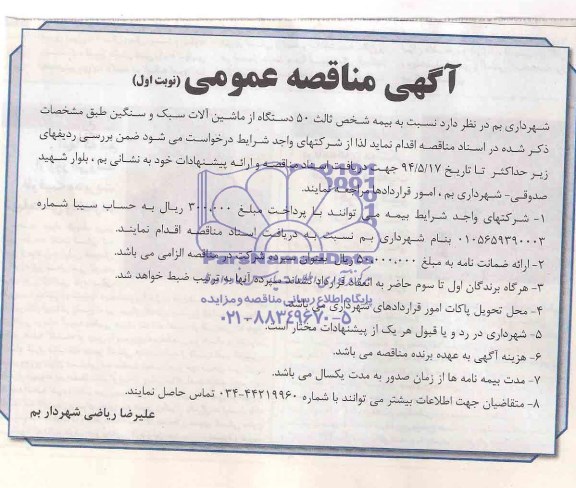 آگهی مناقصه عمومی (نوبت اول)
شهرداری بم در نظر دارد نسبت به بیمه شخص ثالث ۵۰ دستگاه از ماشین آلات سبک و سنگین طبق مشخصات
ذکر شده در اسناد مناقصه اقدام نماید لذا از شرکتهای واجد شرایط درخواست می شود ضمن بررسی ردیفهای
زیر حداکثر تا تاریخ ۹۴/۵/۱۷ جهت دریافت اسناد مناقصه و ارائه پیشنهادات خود به نشانی بم ، بلوار شهید
صدوقی- شهرداری بم ، امور قراردادها مراجعه نمایند.
۱- شرکتهای واجد شرایط بیمه می توانند با پرداخت مبلغ ۳۰۰،۰۰۰ ریال به حساب سیبا شماره
۰۱۰۵۶۵۹۳۹۰۰۰۳ بنام شهرداری بم نسبت به دریافت اسناد مناقصه اقدام نمایند.
۲- ارائه ضمانت نامه به مبلغ ۵۰،۰۰۰،۰۰۰ ریال بعنوان سپرده شرکت در مناقصه الزامی می باشد.
۳- هرگاه برندگان اول تا سوم حاضر به انعقاد قرارداد نشدند سپرده آنها به ترتیب ضبط خواهد شد.
۴- محل تحویل پاکات امور قراردادهای شهرداری می باشد.
۵- شهرداری در رد و یا قبول هر یک از پیشنهادات مختار است.
۶- هزینه آگهی به عهده برنده مناقصه می باشد.
۷- مدت بیمه نامه ها از زمان صدور به مدت یکسال می باشد.
۸- متقاضیان جهت اطلاعات بیشتر می توانند با شماره ۰۳۴-۴۴۲۱۹۹۶۰ تماس حاصل نمایند.
علیرضا ریاضی شهردار بم
پایگاه اطلاع رسانی مناقصه و مزایده
۰۲۱-۸۸۳۴۹۶۷۰-۵